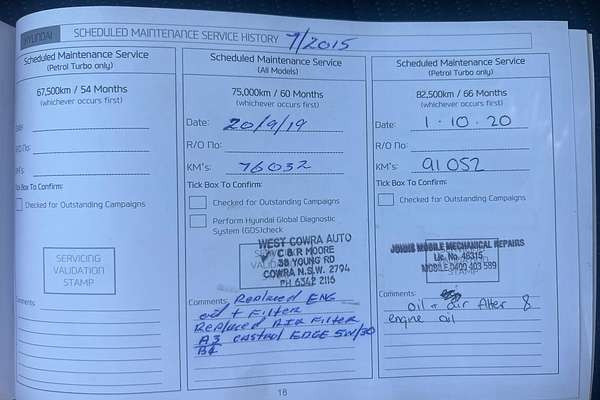 HYUNDAI SCHEDULED MAINTENANCE SERVICE HISTORY 7/2015
Scheduled Maintenance Service
(Petrol Turbo only)
67,500km / 54 Months
(whichever occurs first)
Date:
R/O No:
KM's:
Tick Box To Confirm:
Checked for Outstanding Campaigns
SERVICING
VALIDATION
STAMP
Comments:
Scheduled Maintenance Service
(All Models)
75,000km / 60 Months
(whichever occurs first)
Date: 20/9/19
R/O No:
KM's: 76032
Tick Box To Confirm:
Checked for Outstanding Campaigns
Perform Hyundai Global Diagnostic
System (GDS)check
WEST COWRA AUTO
C & R MOORE
38 YOUNG RD
COWRA N.S.W. 2794
PH 6342 2116
Comments: Replaced ENG
oil + Filter
Replaced AIR Filter
A3 CASTROL EDGE 5W/30
B4
Scheduled Maintenance Service
(Petrol Turbo only)
82,500km / 66 Months
(whichever occurs first)
Date: 1.10.20
R/O No:
KM's: 91052
Tick Box To Confirm:
Checked for Outstanding Campaigns
MOBILE MECHANICAL REPAIRS
Lic. No. 46315
MOBILE 0400 403 589
STAMP
Comments:
oil + air filter &
engine oil
18